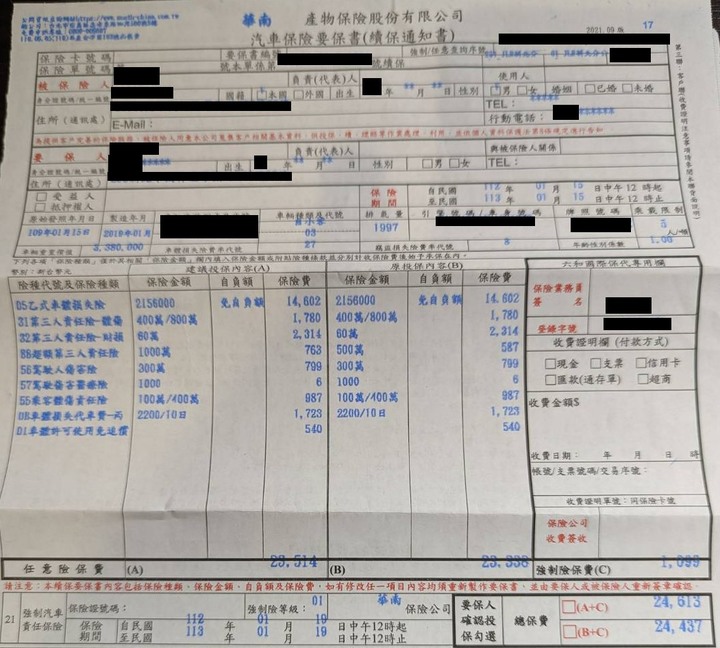 華南 產物保險股份有限公司
汽車保險要保書(續保通知書)
2021.09 版 17
保險卡號碼
要保書編號
強制/任意查詢序號
保險單號碼
號本單係第 號續保
被保險人
負責(代表)人
使用人
國籍 □本國 □外國 出生 年 月 日 性別 □男 □女 婚姻 □已婚 □未婚
住所(通訊處)
E-Mail:
TEL:
行動電話:
要保人
負責(代表)人
與被保險人關係
出生 年 月 日 性別 □男 □女 TEL:
住所(通訊處)
□受益人
□抵押權人
保險期間
自民國 112 年 01 月 15 日中午12時起
至民國 113 年 01 月 15 日中午12時止
原始發照年月日 製造年月 車輛種類及代號 排氣量 引擎號碼/車身號碼 牌照號碼 乘載限制
109年01月15日 2019年01月 03 1997 5
車輛重置價值 3,380,000 車體損失險費率代號 27 竊盜損失險費率代號 8 年齡性別係數 1.00
幣別:新台幣元
建議投保內容(A) 原投保內容(B)
險種代號及保險種類 保險金額 自負額 保險費 保險金額 自負額 保險費
05乙式車體損失險 2156000 免自負額 14,602 2156000 免自負額 14,602
31第三人責任險-體傷 400萬/800萬 1,780 400萬/800萬 1,780
32第三人責任險-財損 60萬 2,314 60萬 2,314
超額第三人責任險 1000萬 763 500萬 587
56駕駛人傷害險 300萬 799 300萬 799
57駕駛傷害醫療險 1000 6 1000 6
55乘客體傷責任險 100萬/400萬 987 100萬/400萬 987
車體損失代車費-丙 2200/10日 1,723 2200/10日 1,723
車體許可使用免追償 540 540
任意險保費 (A) 23,514 (B) 23,338 強制險保費(C) 1,099
六和國際保代專用欄
保險業務員
簽名
登錄字號
收費證明欄(付款方式)
□現金 □支票 □信用卡
□匯款(通存單) □超商
收費金額$
收費日期: 年 月 日 時
帳號/支票號碼/交易序號:
收費證明單號:同保險卡號
保險公司
收費簽收
請注意:本續保要保書內容包括保險種類、保險金額、自負額及保險費,如有修改任一項目內容均須重新製作要保書,並由要保人或被保險人重新簽章確認。
21 強制汽車責任保險
保險證號碼: 強制險等級: 01 華南 保險公司
保險期間
自民國 112 年 01 月 19 日中午12時起
至民國 113 年 01 月 19 日中午12時止
要保人確認投保勾選
總保費
□(A+C) 24,613
□(B+C) 24,437